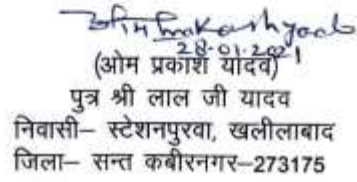 ओम prakash yadav
28-01-2021
(ओम प्रकाश यादव)
पुत्र श्री लाल जी यादव
निवासी– स्टेशनपुरवा, खलीलाबाद
जिला– सन्त कबीरनगर–273175